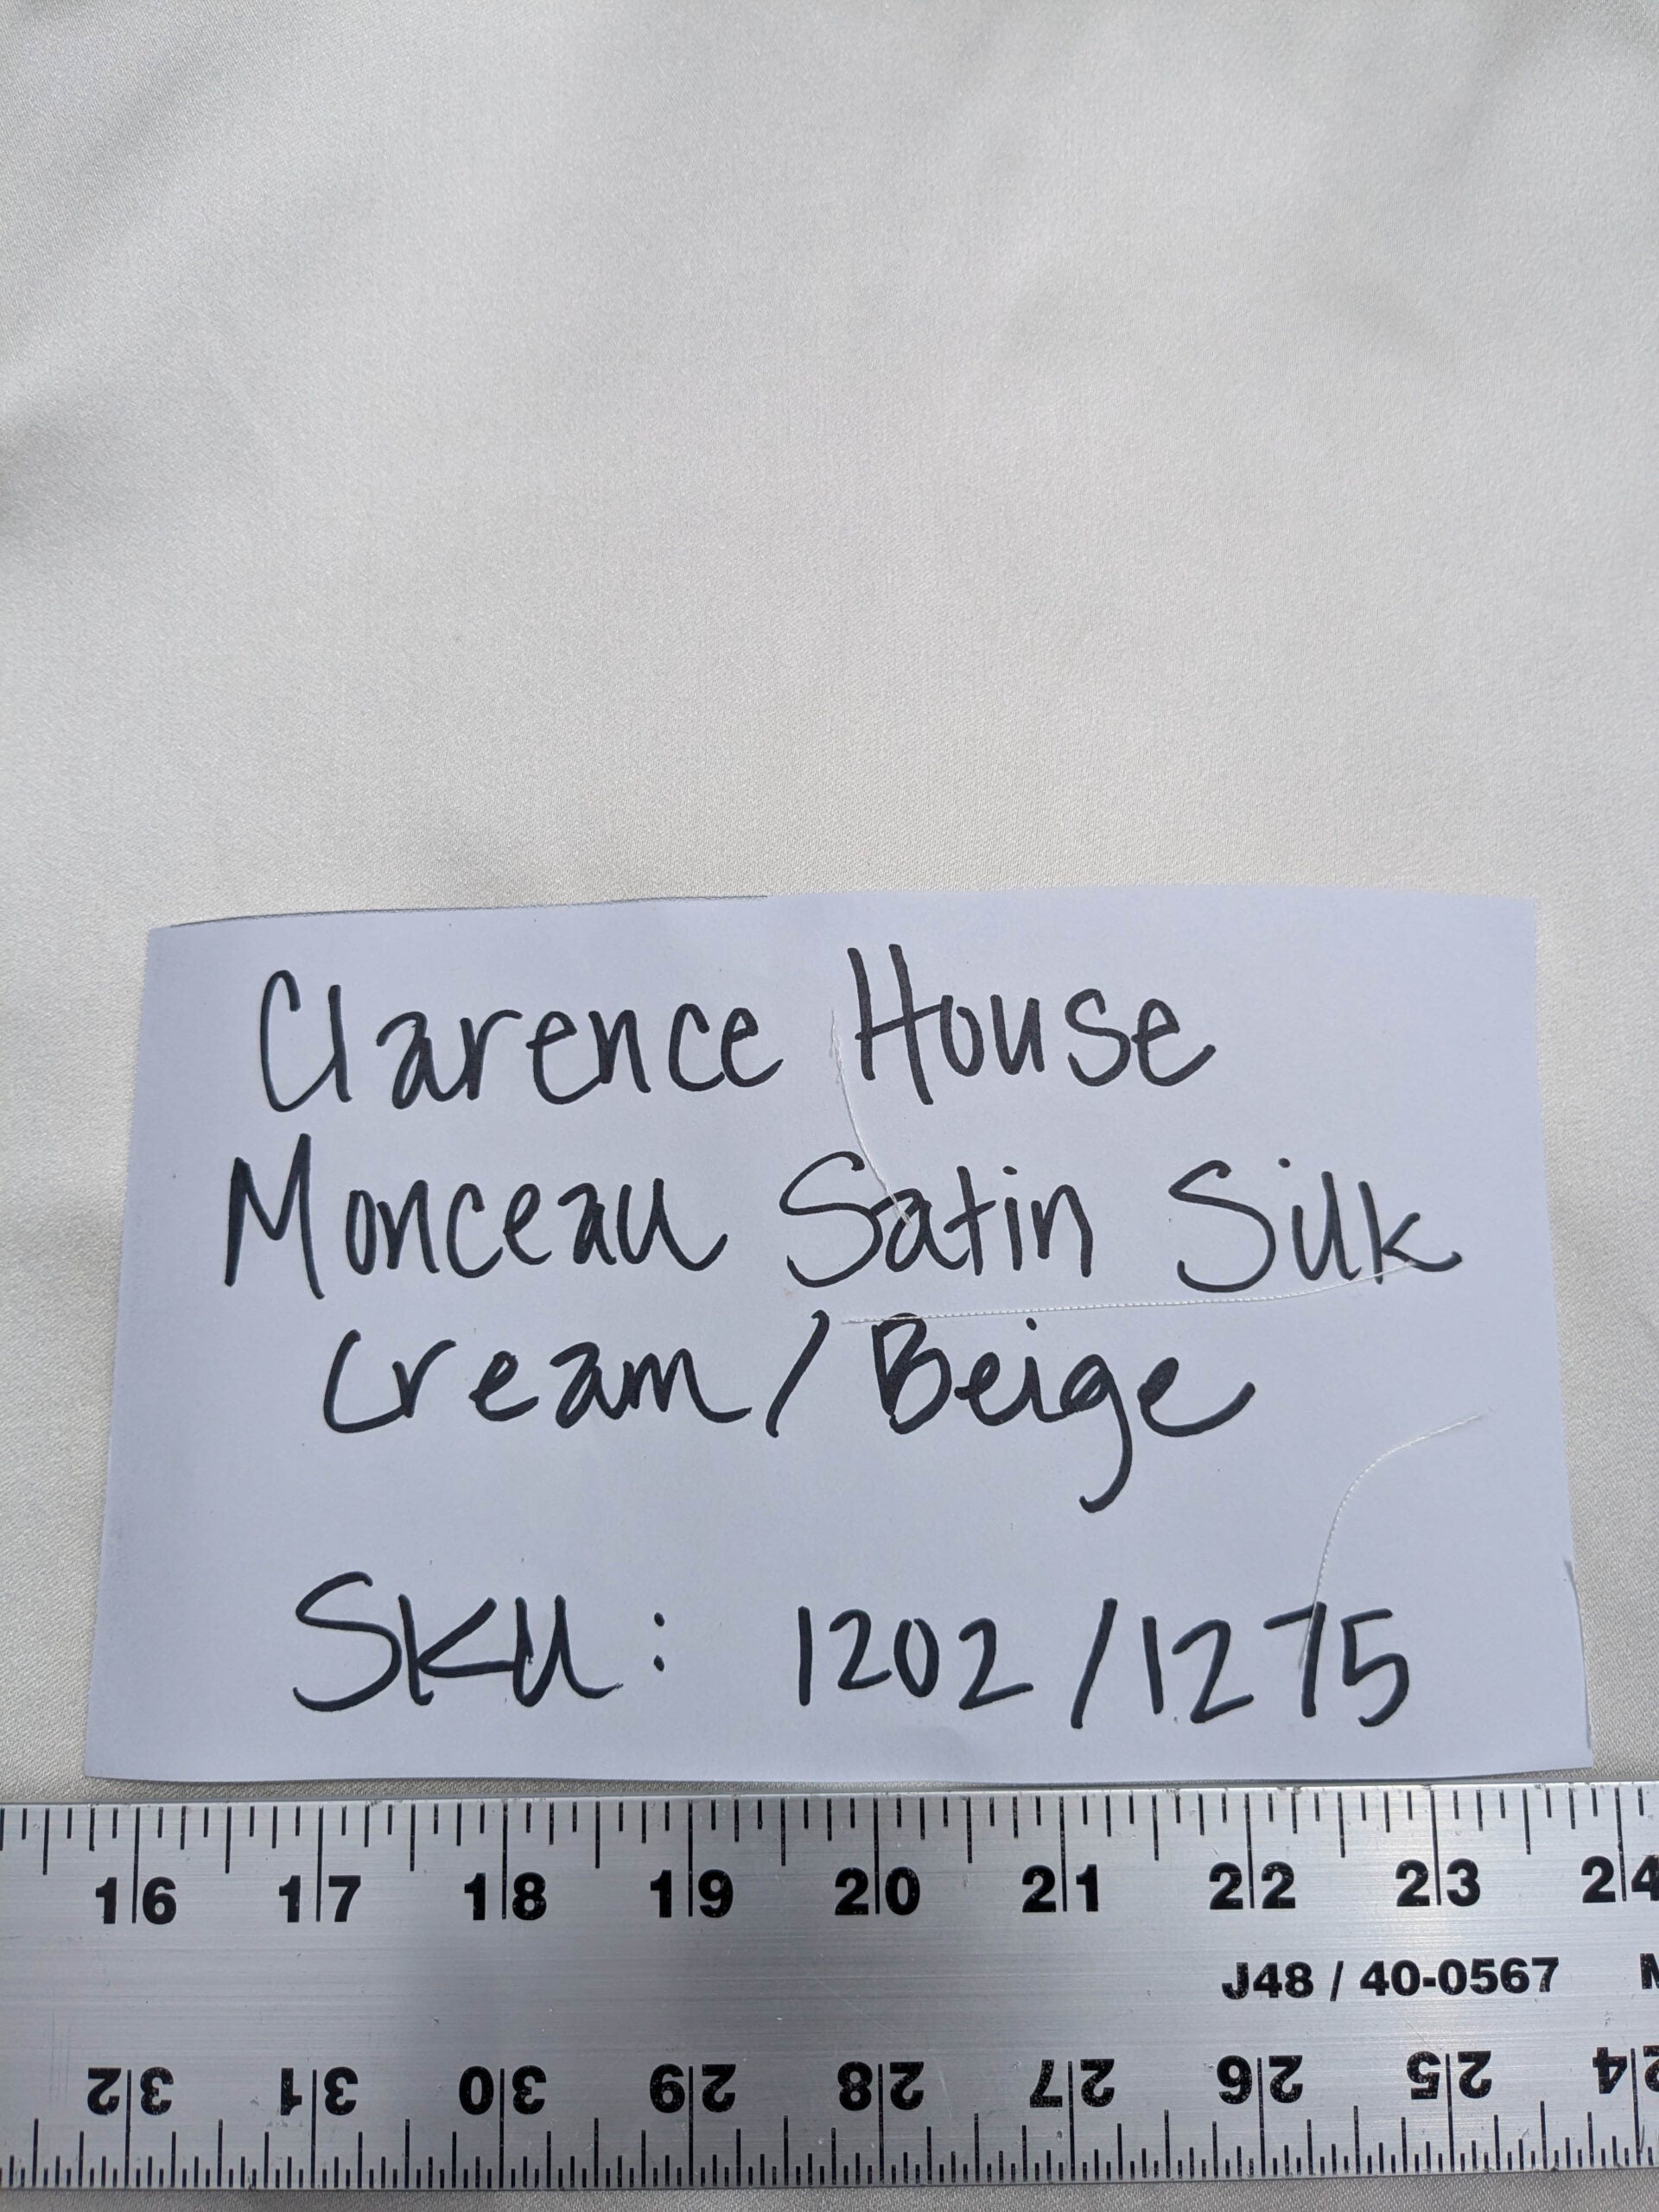 Clarence House
Monceau Satin Silk
Cream/Beige
SKU: 1202/1275
16 17 18 19 20 21 22 23 24
J48 / 40-0567
32 31 30 29 28 27 26 25 24